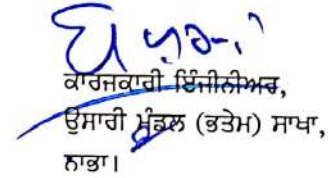 ਕਾਰਜਕਾਰੀ ਇੰਜੀਨੀਅਰ,
ਉਸਾਰੀ ਮੰਡਲ (ਭਤੇਮ) ਸਾਖਾ,
ਨਾਭਾ।